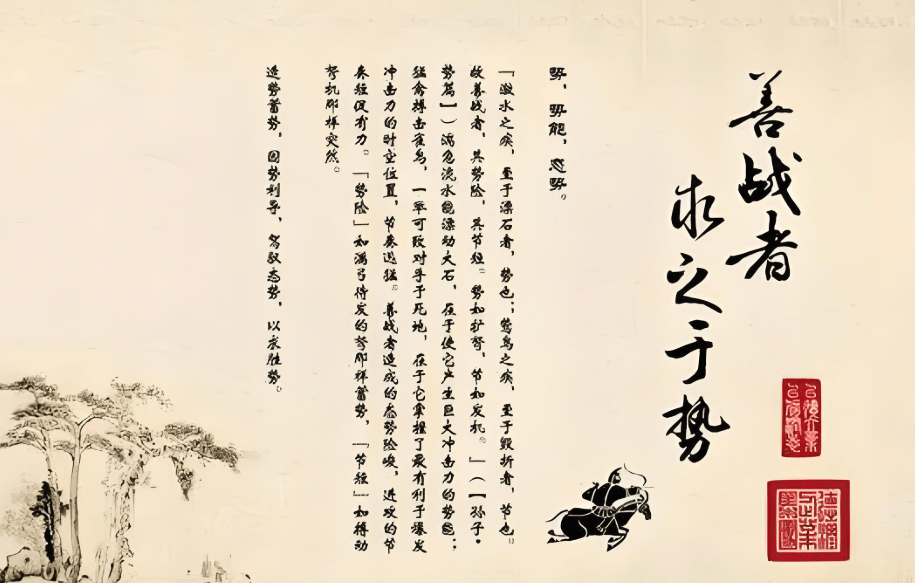 善战者
求之于势
势，势能，态势。
「激水之疾，至于漂石者，势也；鸷鸟之疾，至于毁折者，节也。
故善战者，其势险，其节短。势如扩弩，节如发机。」(【孙子·
势篇】)湍急流水能漂动大石，在于使它产生巨大冲击力的势能；
猛禽搏击雀鸟，一举可致对手于死地，在于它掌握了最有利于爆发
冲击力的时空位置，节奏迅猛。善战者造成的态势险峻，进攻的节
奏短促有力。「势险」如满弓待发的弩那样蓄势，「节短」如搏动
弩机那样突然。
造势蓄势，因势利导，驾驭态势，以求胜势。